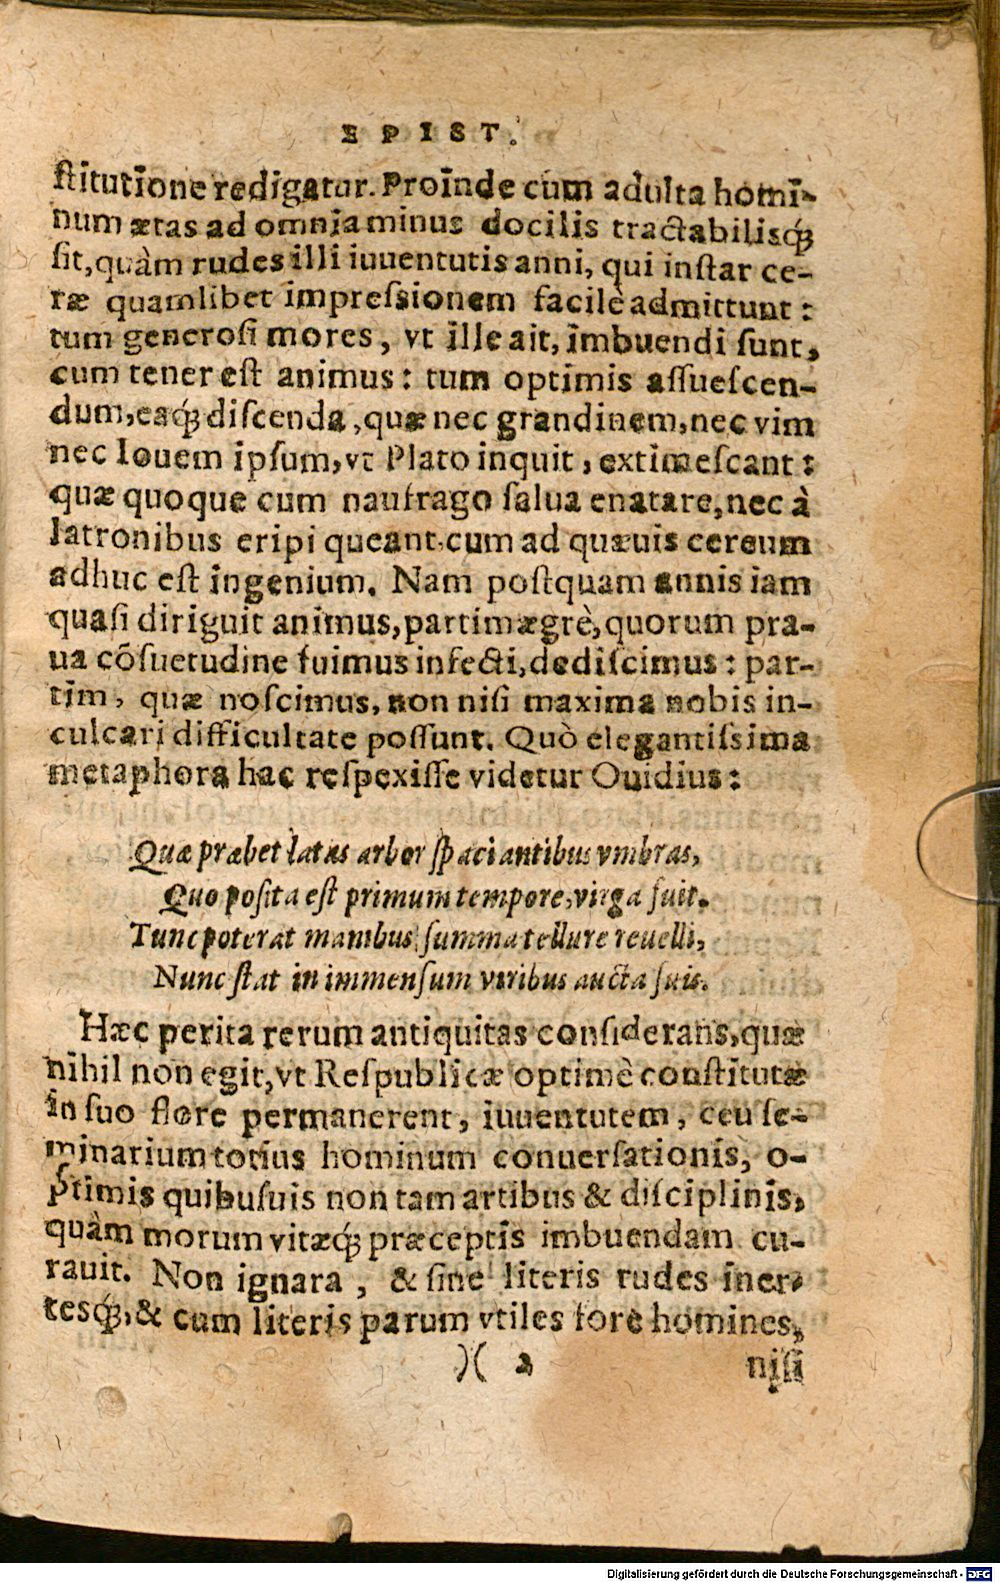 EPIST.
ſtitutione redigatur. Proinde cùm adulta homi-
num ætas ad omnia minus docilis tractabilisq́;
ſit, quàm rudes illi iuuentutis anni, qui inſtar ce-
ræ quamlibet impreſsionem facilè admittunt:
tum generoſi mores, vt ille ait, imbuendi ſunt,
cum tener eſt animus: tum optimis aſſueſcen-
dum, eaq́; diſcenda, quæ nec grandinem, nec vim
nec Iouem ipſum, vt Plato inquit, extimeſcant:
quæ quoque cum naufrago ſalua enatare, nec à
latronibus eripi queant, cum ad quæuis cereum
adhuc eſt ingenium. Nam poſtquam annis iam
quaſi diriguit animus, partim ægrè, quorum pra-
ua cõſuetudine fuimus infecti, dediſcimus: par-
tim, quæ noſcimus, non niſi maxima nobis in-
culcari difficultate poſſunt. Quò elegantiſsima
metaphora hac reſpexiſſe videtur Ouidius:
Quæ præbet latas arbor ſpaciantibus vmbras,
Quo poſita eſt primum tempore, virga fuit.
Tunc poterat manibus ſumma tellure reuelli,
Nunc ſtat in immenſum viribus aucta ſuis.
Hæc perita rerum antiquitas conſiderans, quæ
nihil non egit, vt Reſpublicæ optimè conſtitutæ
in ſuo flore permanerent, iuuentutem, ceu ſe-
minarium totius hominum conuerſationis, o-
ptimis quibuſuis non tam artibus & diſciplinis,
quàm morum vitæq́; præceptis imbuendam cu-
rauit. Non ignara, & ſine literis rudes iner-
tesq́;, & cum literis parum vtiles fore homines,
)( 2
niſi
Digitalisierung gefördert durch die Deutsche Forschungsgemeinschaft - DFG